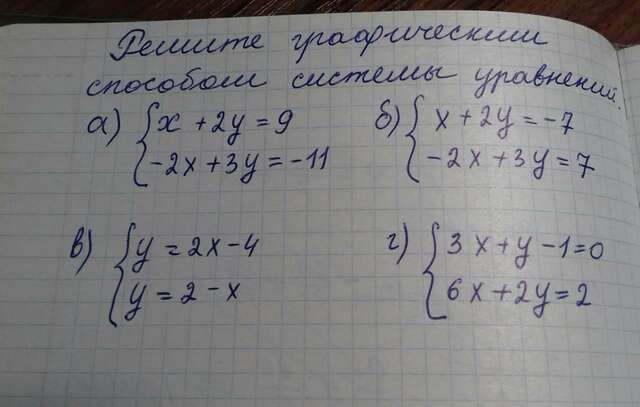 Решите графическим
способом системы уравнений.
а) { x + 2y = 9
-2x + 3y = -11
б) { x + 2y = -7
-2x + 3y = 7
в) { y = 2x - 4
y = 2 - x
г) { 3x + y - 1 = 0
6x + 2y = 2